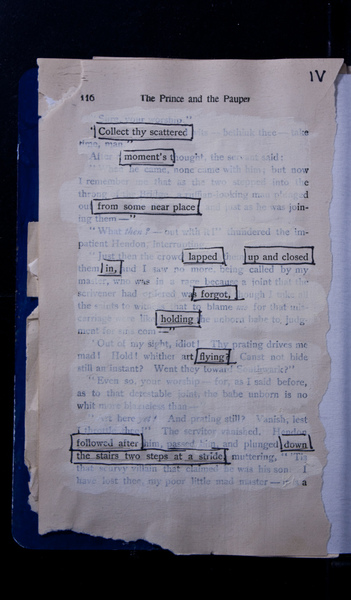 IV
116 The Prince and the Pauper
Sure, your worship."
"Collect thy scattered — bethink thee — take
time, man."
"After moment's thought, the servant said:
"When he came, none came with him; but now
I remember me that as the two stepped into the
throng Bridge, a ruffian-looking man plunged
out from some near place and just as he was join-
ing them—"
"What then? — out with it!" thundered the im-
patient Hendon, interrupting.
"Just then the crowd lapped up and closed
them in, and I saw no more, being called by my
master, who was in a rage because a joint that the
scrivener had ordered was forgot, though I take
the saints to witness that to blame me for that mis-
carriage like holding the unborn babe to judg-
ment for sins com—"
"Out of my sight, idiot! Thy prating drives me
mad! Hold! whither art flying? Canst not bide
still an instant? Went they toward Southwark?"
"Even so, your worship — for, as I said before,
as to that detestable joint, the babe unborn is no
whit more blameless than—"
"Art here yet? And prating still? Vanish, lest
I throttle thee!" The servitor vanished. Hendon
followed after him, passed him, and plunged down
the stairs two steps at a stride, muttering, "'Tis
that scurvy villain that claimed he was his son. I
have lost thee, my poor little mad master — it is a